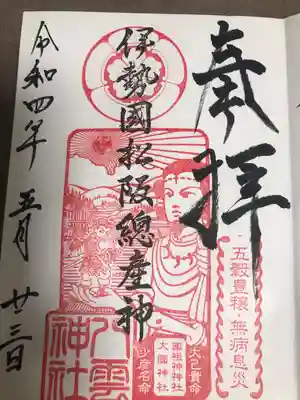 奉拝
五穀豊穣・無病息災
伊勢國松阪總産神
大己貴命
國祖神神社
大國神社
少彦名命
八雲神社
令和四年 五月 廿三日